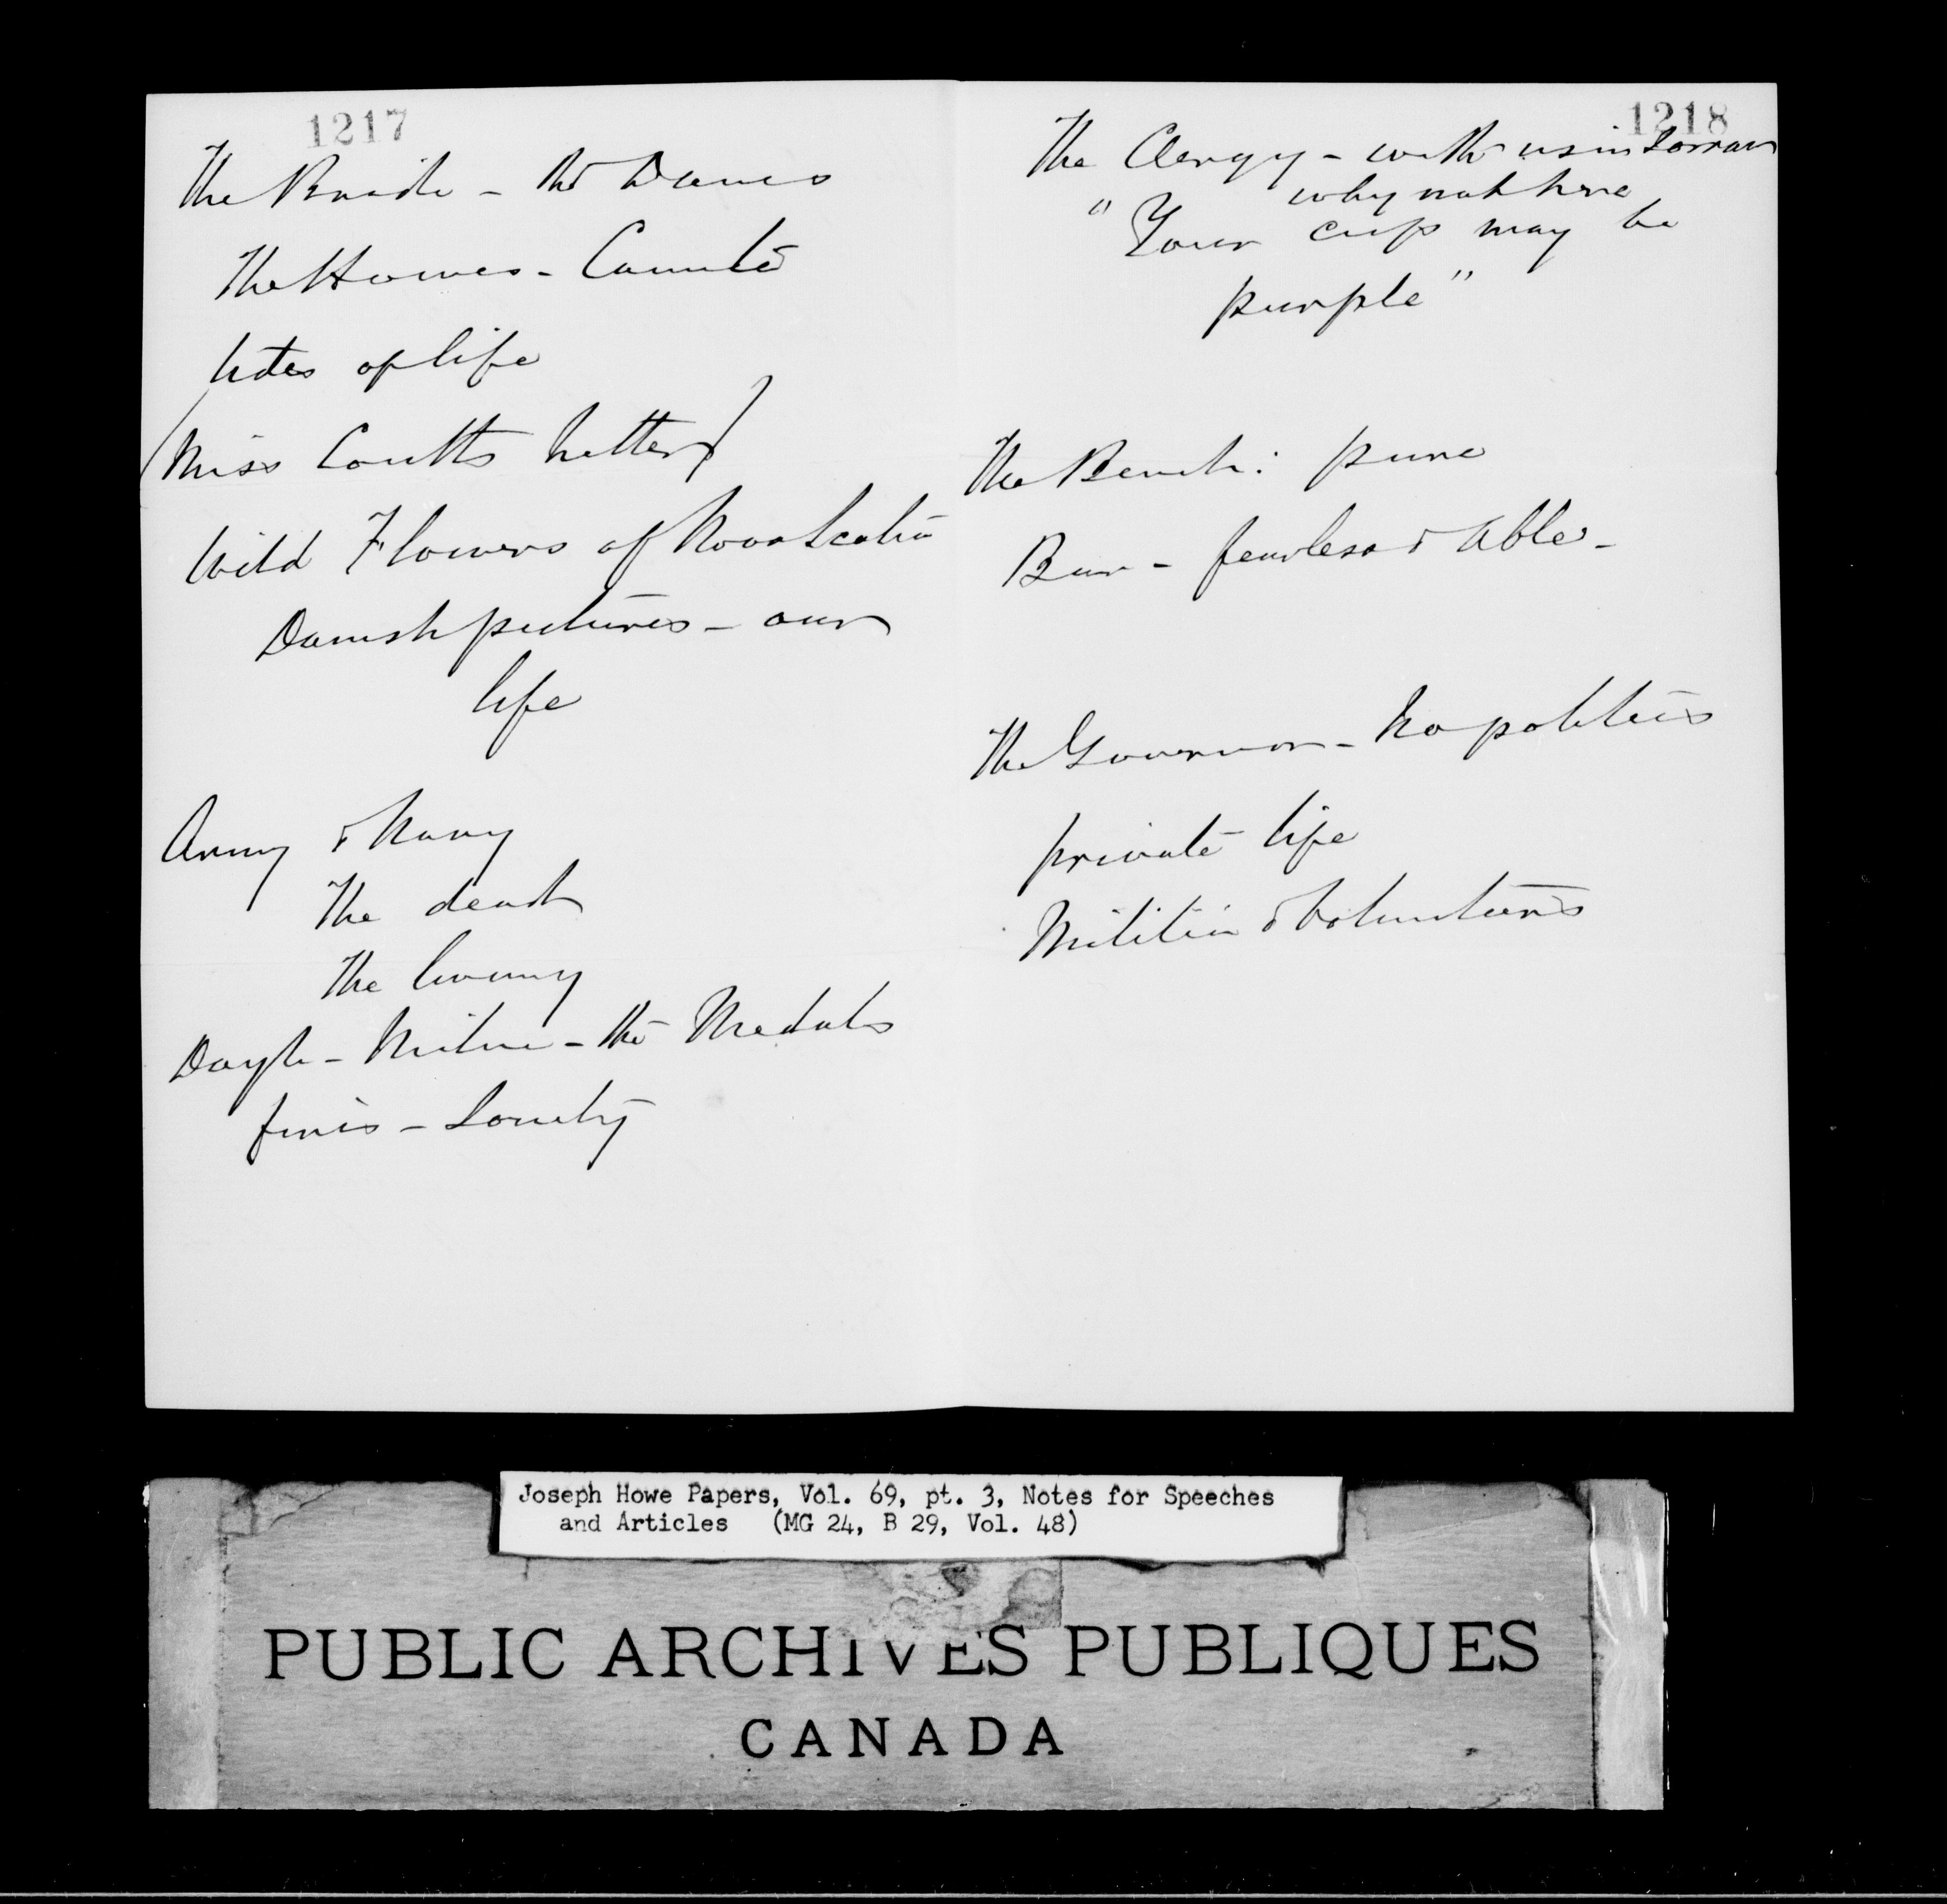 1217
The Bride - the Danes
The Howes - Canute
tides of life
(Miss Coutts Letter)
Wild Flowers of Nova Scotia
Danish pictures - our
life
Army & Navy
The dead
The living
Doyle - Milne - the Medals
finis - Society
1218
The Clergy - with us in Sorrow
why not here
"Your cup may be
purple"
The Bench: pure
Bar - fearless & able -
The Governor - no politics
private life
Militia & Volunteers
Joseph Howe Papers, Vol. 69, pt. 3, Notes for Speeches
and Articles (MG 24, B 29, Vol. 48)
PUBLIC ARCHIVES PUBLIQUES
CANADA